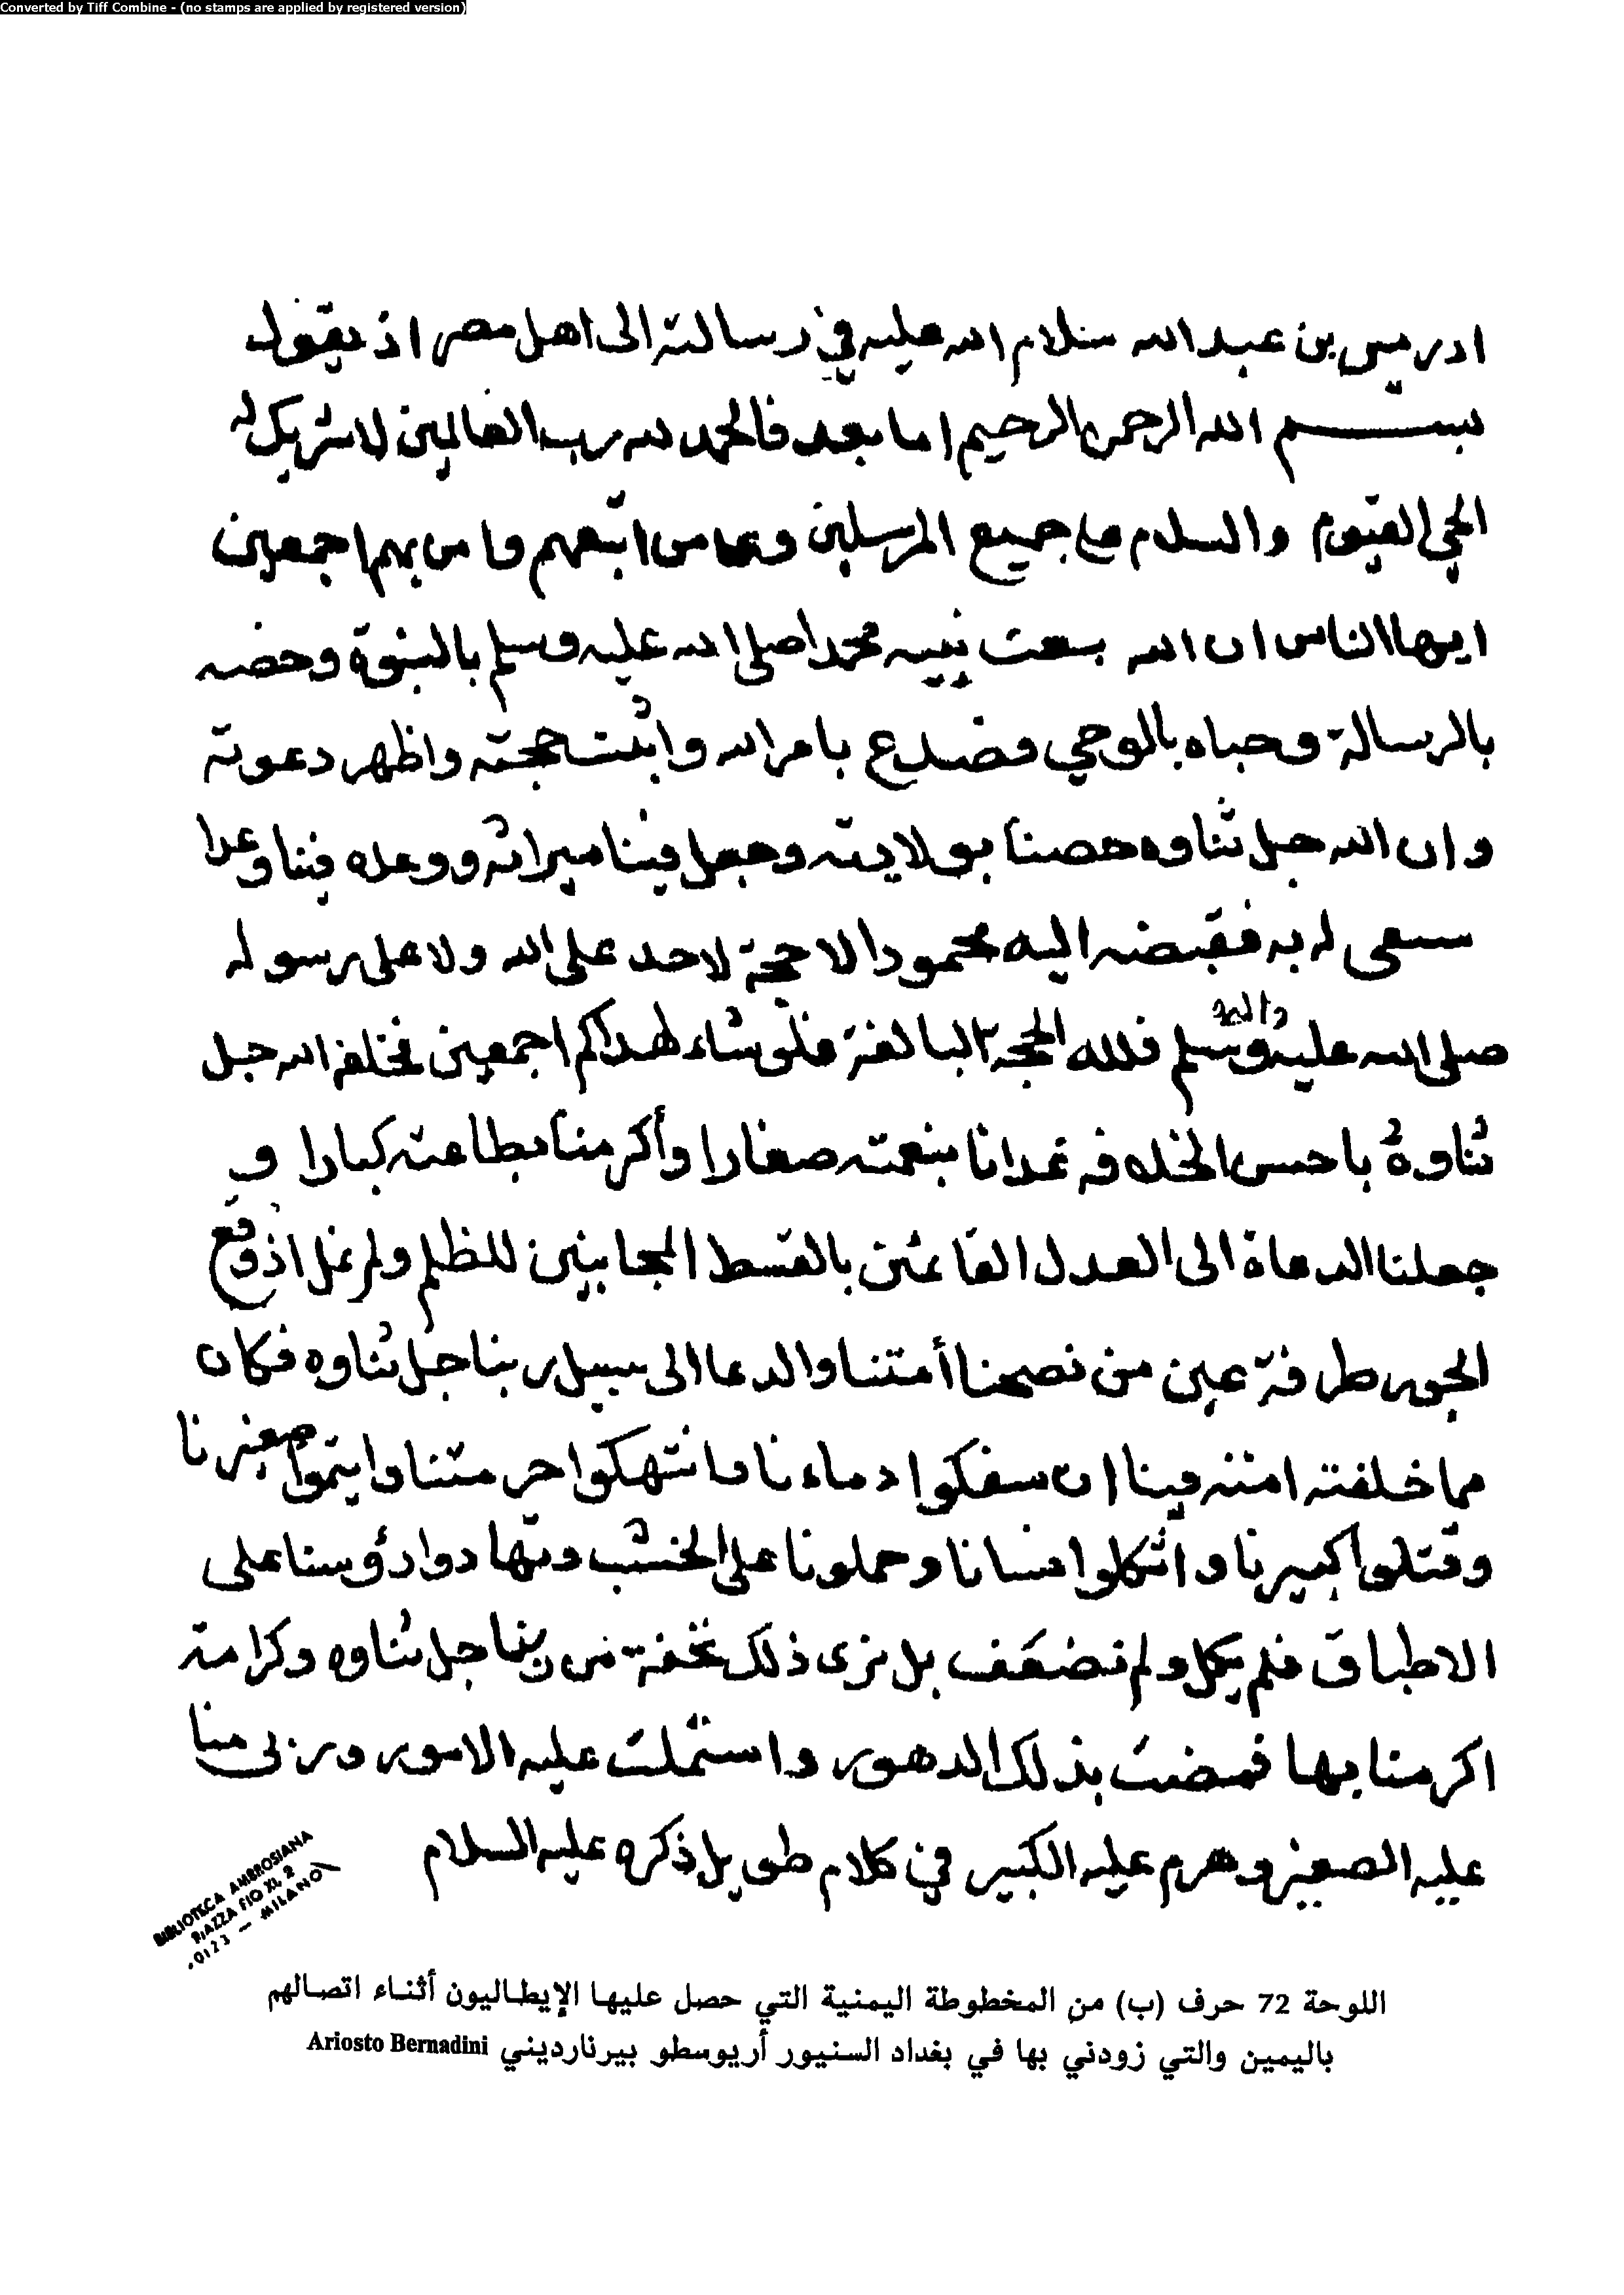 Converted by Tiff Combine - (no stamps are applied by registered version)
ادريس بن عبد الله سلام الله عليه في رسالته الى اهل مصر اذ يقول
بسم الله الرحمن الرحيم اما بعد فالحمد لله رب العالمين لا شريك له
الحي القيوم والسلام على جميع المرسلين وعلى من اتبعهم وامن بهم اجمعين
ايها الناس ان الله بعث نبيه محمدا صلى الله عليه وسلم بالنبوة وخصه
بالرسالة وحباه بالوحي فصدع بامر الله واثبت حجته واظهر دعوته
وان الله جل ثناوه خصنا بولايته وجعل فينا ميراثه ووعده فينا وعدا
سعى له به فقبضه اليه محمودا لا حجة لاحد على الله ولا على رسوله
صلى الله عليه واله وسلم فلله الحجة البالغة فلو شاء لهداكم اجمعين فخلفه الله جل
ثناوه باحسن الخلافه غدانا بنعمته صغارا وأكرمنا بطاعته كبارا و
جعلنا الدعاة الى العدل القائمين بالقسط المجانبين للظلم ولم نمل اذ وقع
الجور طرفة عين من نصحنا أمتنا والدعا الى سبيل ربنا جل ثناوه فكان
مما خلفته امته فينا ان سفكوا دماءنا وانتهكوا حرمتنا وايتموا صغيرنا
وقتلوا كبيرنا واثكلوا نسانا وحملونا على الخشب وتهادوا رؤوسنا على
الاطباق فلم نكل ولم نضعف بل نرى ذلك تحفة من ربنا جل ثناوه وكرامة
اكرمنا بها فمضت بذلك الدهور واشتملت عليه الامور وربى منا
عليه الصغير وهرم عليه الكبير في كلام طويل ذكره عليه السلام
BIBLIOTECA AMBROSIANA
PIAZZA PIO XI, 2
20123 - MILANO
اللوحة 72 حرف (ب) من المخطوطة اليمنية التي حصل عليها الإيطاليون أثناء اتصالهم
باليمين والتي زودني بها في بغداد السنيور أريوسطو بيرنارديني Ariosto Bernadini